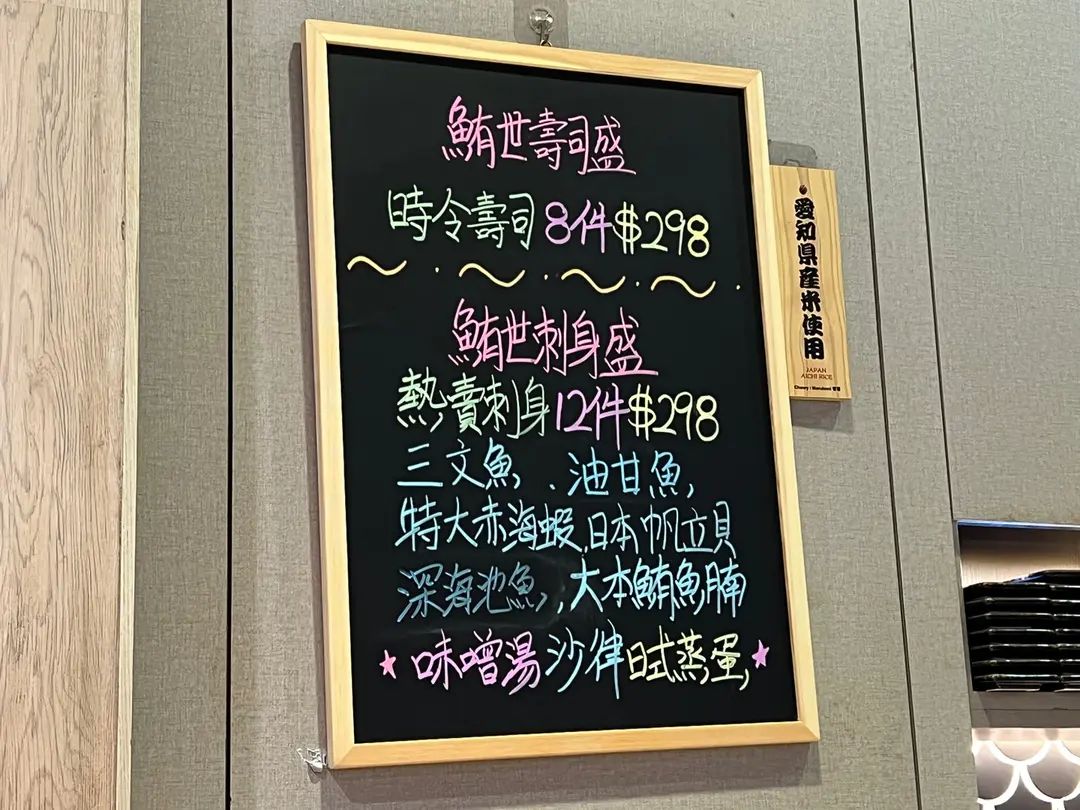 鮪世壽司盛
時令壽司8件$298
鮪世刺身盛
熱賣刺身12件$298
三文魚、油甘魚,
特大赤海蝦,日本帆立貝
深海池魚,大本鮪魚腩
味噌湯沙律日式蒸蛋
愛知県産米使用
JAPAN
AICHI RICE